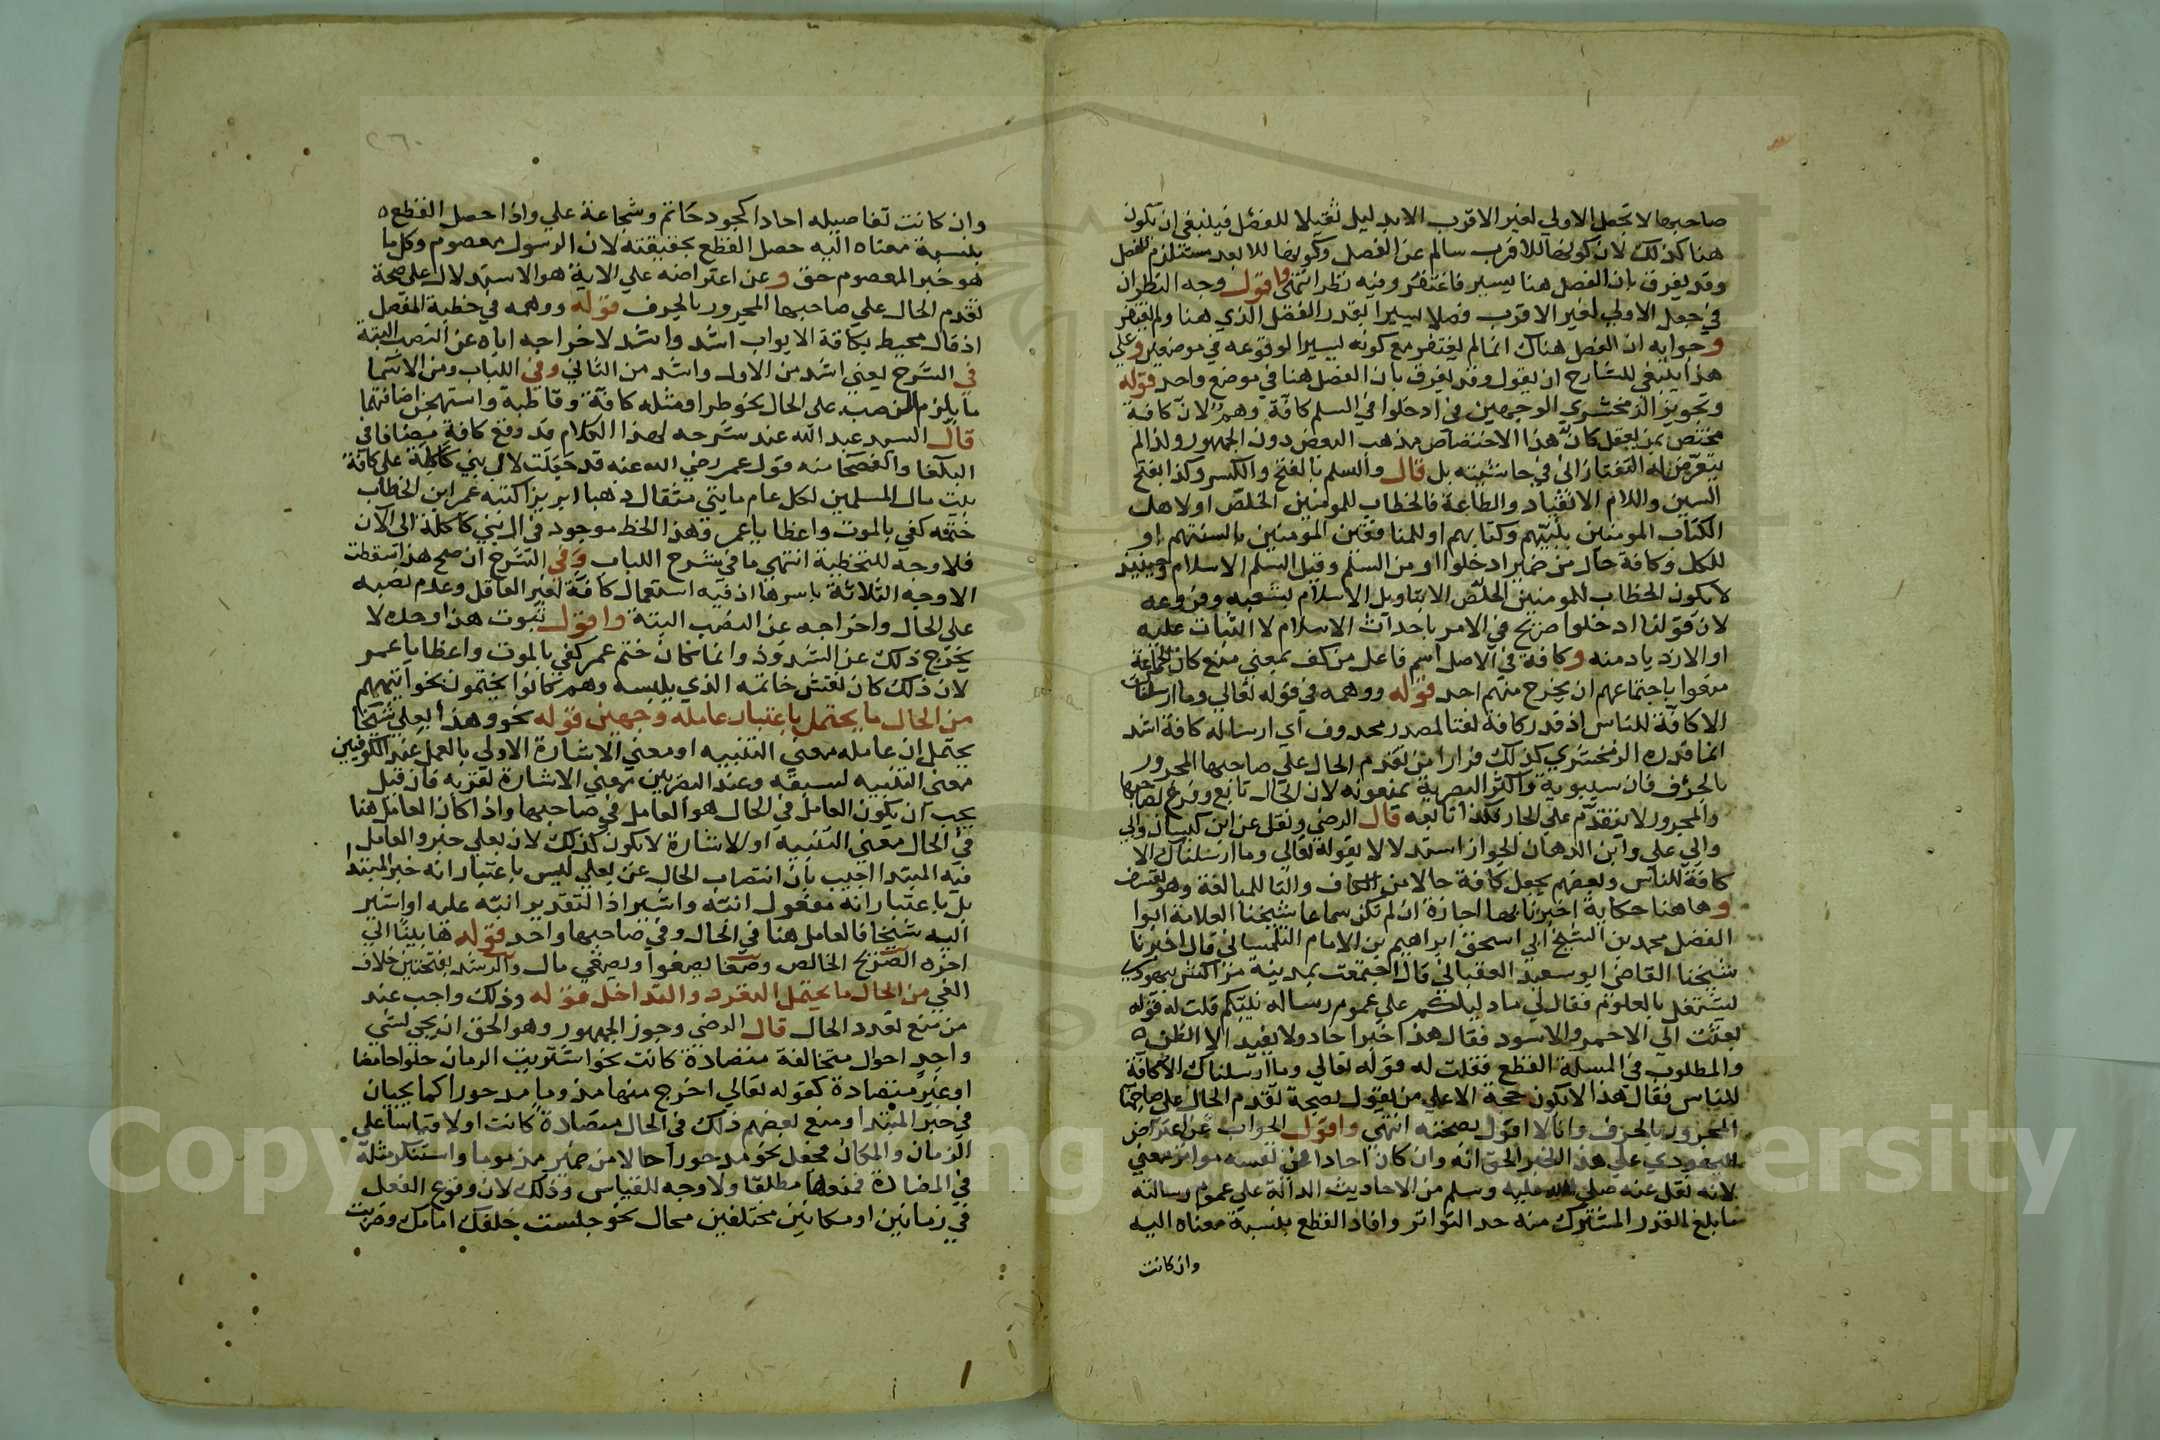 صاحبها لا تجعل الاولي لغير الاقرب الا بدليل تقليلا للفصل فينبغي ان تكون
هنا كذلك لان كونها للاقرب سالم عن الفصل وكونها للابعد مستلزم للفصل
وقد يفرق بان الفصل هنا يسير فاغتفر وفيه نظر انتهى واقول وجه النظر ان
في جعل الاولي لغير الاقرب فصلا يسيرا بقدر الفصل الذي هنا ولم يغتفر
وجوابه ان الفصل هناك انما لم يغتفر مع كونه يسيرا لوقوعه في موضعين وعلي
هذا ينبغي للشارح ان يقول وقد يفرق بان الفصل هنا في موضع واحد قوله
وتجويز الزمخشري الوجهين في ادخلوا في السلم كافة وهم لان كافة
مختص بمن يعقل كان هذا الاختصاص مذهب البعض دون الجمهور ولذا لم
يتعرض له التفتازاني في حاشيته بل قال والسلم بالفتح والكسر وكذا بفتح
السين واللام الانقياد والطاعة فالخطاب للمومنين الخلص او لاهل
الكتاب المومنين بنبيهم وكتابهم او للمنافقين المومنين بالسنتهم او
للكل وكافة حال من ضمير ادخلوا او من السلم وقيل السلم الاسلام وحينيذ
لا يكون الخطاب للمومنين الخلص الا بتاويل الاسلام بشعبه وفروعه
لان قولنا ادخلوا صريح في الامر باحداث الاسلام لا الثبات عليه
او الازدياد منه وكافة في الاصل اسم فاعل من كف بمعني منع كان الجماعة
منعوا باجتماعهم ان يخرج منهم احد قوله ووهمه في قوله تعالي وما ارسلناك
الا كافة للناس اذ قدر كافة نعتا لمصدر محذوف اي ارسالة كافة اشد
انما قدره الزمخشري كذلك فرارا من تقدم الحال علي صاحبها المجرور
بالحرف فان سيبوية واكثر البصرية يمنعونه لان الحال تابع وفرع لصاحبها
والمجرور لا يتقدم علي الجار فكذا تابعه قال الرضي ونقل عن ابن كيسان وابي
وابي علي وابن الدهان الجواز استدلالا بقوله تعالي وما ارسلناك الا
كافة للناس وبعضهم يجعل كافة حالا من الكاف والتا للمبالغة وهو تعسف
وهاهنا حكاية اخبرنا بها اجازة ان لم تكن سماعا شيخنا العلامة ابوا
الفضل محمد بن الشيخ ابي اسحق ابراهيم بن الامام التلمساني قال اخبرنا
شيخنا القاضي ابو سعيد العقباني قال اجتمعت بمدينة مراكش بيهودي
يشتغل بالعلوم فقال لي ما دليلكم علي عموم رسالة نبيكم قلت له قوله
بعثت الي الاحمر والاسود فقال هذا خبر احاد ولا يفيد الا الظن
والمطلوب في المسلة القطع فقلت له قوله تعالي وما ارسلناك الا كافة
للناس فقال هذا لا يكون حجة الا علي من يقول بصحة تقدم الحال علي صاحبها
المجرور بالحرف وانا لا اقول بصحته انتهي واقول الجواب عن اعتراض
اليهودي علي هذا الخبر الحق انه وان كان احادا في نفسه متواتر معني
لانه نقل عنه صلي الله عليه وسلم من الاحاديث الدالة علي عموم رسالته
ما بلغ القدر المشترك منه حد التواتر وافاد القطع بنسبة معناه اليه
وان كانت
وان كانت تفاصيله احادا كجود حاتم وشجاعة علي واذا حصل القطع
بنسبة معناه اليه حصل القطع بحقيقته لان الرسول معصوم وكل ما
هو خبر المعصوم حق وعن اعتراضه علي الاية هو الاستدلال علي صحة
تقدم الحال علي صاحبها المجرور بالحرف قوله ووهمه في خطبة المفصل
اذ قال محيط بكافة الابواب اشد واشد لاخراجه اياه عن النصب البتة
في الشرح يعني اشد من الاول واشد من الثاني وفي اللباب ومن الاسما
ما يلزم النصب علي الحال نحو طرا ومثله كافة وقاطبة واستهجن اضافتها
قال السيد عبد الله عند شرحه لهذا الكلام قد وقع كافة مضافا في
البلغا والفصحا منه قول عمر رضي الله عنه قد جعلت لال بني كاكلة علي كافة
بيت مال المسلمين لكل عام مايتي مثقال ذهبا ابريزا كتبه عمر ابن الخطاب
ختمه كفي بالموت واعظا يا عمر وهذا الخط موجود في ال بني كاكلة الي الان
فلا وجه للتخطية انتهي ما في شرح اللباب وفي الشرح ان صح هذا سقطت
الاوجه الثلاثة باسرها اذ فيه استعمال كافة لغير العاقل وعدم نصبه
علي الحال واخراجه عن النصب البتة واقول ثبوت هذا وحده لا
يخرج ذلك عن الشذوذ وانما كان ختم عمر كفي بالموت واعظا يا عمر
لان ذلك كان نقش خاتمه الذي يلبسه وهم كانوا يختمون بخواتيمهم
من الحال ما يحتمل باعتبار عامله وجهين قوله نحو وهذا بعلي شيخا
يحتمل ان عامله معني التنبيه او معني الاشارة الاولي بالعمل عند الكوفيين
معني التنبيه لسبقه وعند البصريين معني الاشارة لقربه فان قيل
يجب ان يكون العامل في الحال هو العامل في صاحبها واذا كان العامل هنا
في الحال معني التنبيه او الاشارة لا يكون كذلك لان بعلي خبر والعامل
فيه المبتدا اجيب بان انتصاب الحال عن بعلي ليس باعتبار انه خبر المبتدا
بل باعتبار انه مفعول انبه واشير اذ التقدير انبه عليه او اشير
اليه شيخا فالعامل هنا في الحال وفي صاحبها واحد قوله ها بينا الي
اخره الصريح الخالص وصغا يصغوا ويصغي مال والرشد بفتحتين خلاف
الغي من الحال ما يحتمل التعدد والتداخل قوله وذلك واجب عند
من منع تعدد الحال قال الرضي وجوز الجمهور وهو الحق ان يجي لشي
واحد احوال متخالفة متضادة كانت نحو اشتريت الرمان حلوا حامضا
او غير متضادة كقوله تعالي اخرج منها مذوما مدحورا كما يجيان
في خبر المبتدا ومنع بعضهم ذلك في الحال متضادة كانت او لا قياسا علي
الزمان والمكان فجعل نحو مدحورا حالا من ضمير مذموما واستنكر مثله
في المضادة فمنعها مطلقا ولا وجه للقياس وذلك لان وقوع الفعل
في زمانين او مكانين مختلفين محال نحو جلست خلفك امامك وضربت